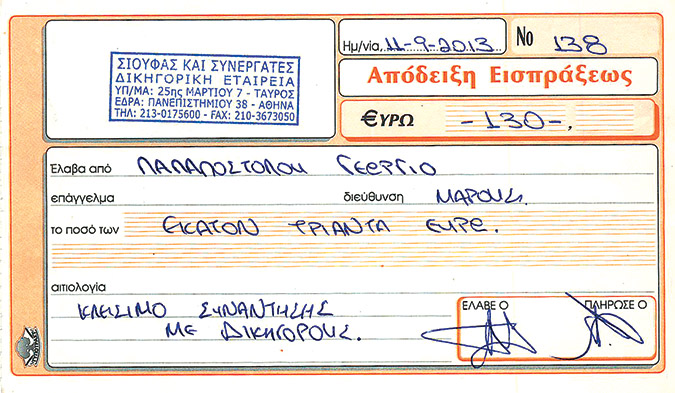 Ημ/νία, 11-9-2013 Νο 138
ΣΙΟΥΦΑΣ ΚΑΙ ΣΥΝΕΡΓΑΤΕΣ
ΔΙΚΗΓΟΡΙΚΗ ΕΤΑΙΡΕΙΑ
ΥΠ/ΜΑ: 25ης ΜΑΡΤΙΟΥ 7 - ΤΑΥΡΟΣ
ΕΔΡΑ: ΠΑΝΕΠΙΣΤΗΜΙΟΥ 38 - ΑΘΗΝΑ
ΤΗΛ: 213-0175600 - FAX: 210-3673050
Απόδειξη Εισπράξεως
€ΥΡΩ -130-.
Έλαβα από ΠΑΠΑΠΟΣΤΟΛΟΥ ΓΕΩΡΓΙΟ
επάγγελμα διεύθυνση ΜΑΡΟΥΣΙ.
το ποσό των ΕΚΑΤΟΝ ΤΡΙΑΝΤΑ ΕΥΡΩ.
αιτιολογία
ΚΛΕΙΣΙΜΟ ΣΥΝΑΝΤΗΣΗΣ
ΜΕ ΔΙΚΗΓΟΡΟΥΣ.
ΕΛΑΒΕ Ο ΠΛΗΡΩΣΕ Ο